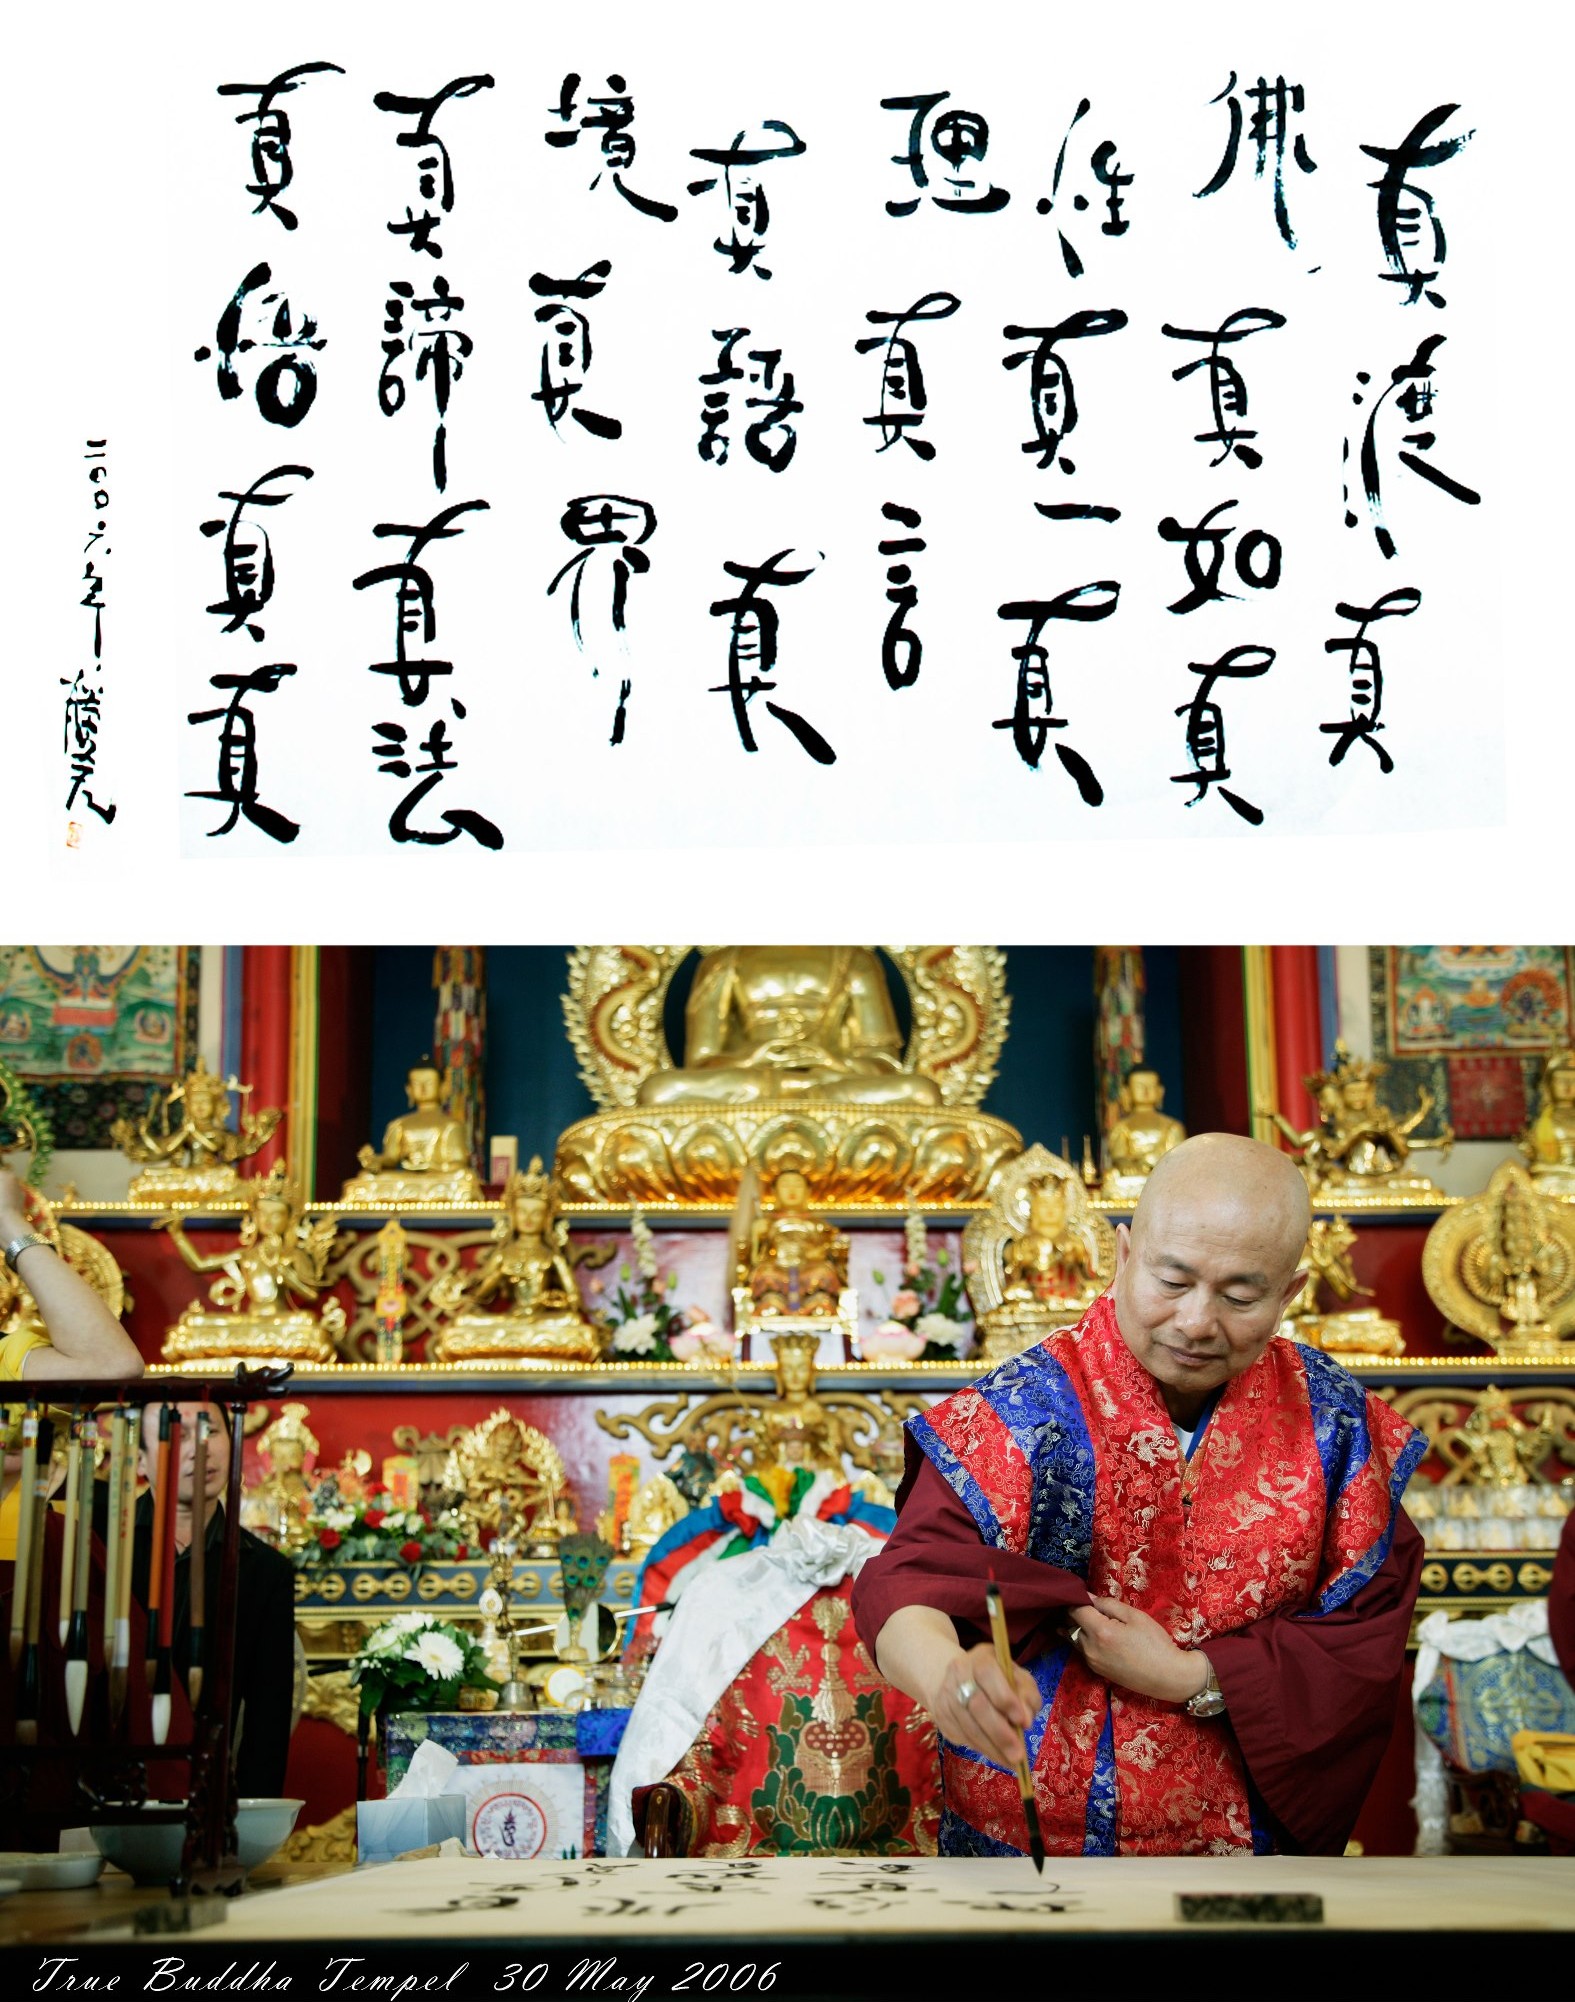 真渡真
佛真如真
性真一真
理真言
真語真
境真界
真諦真法
真悟真真
二〇〇六年
True Buddha Tempel 30 May 2006